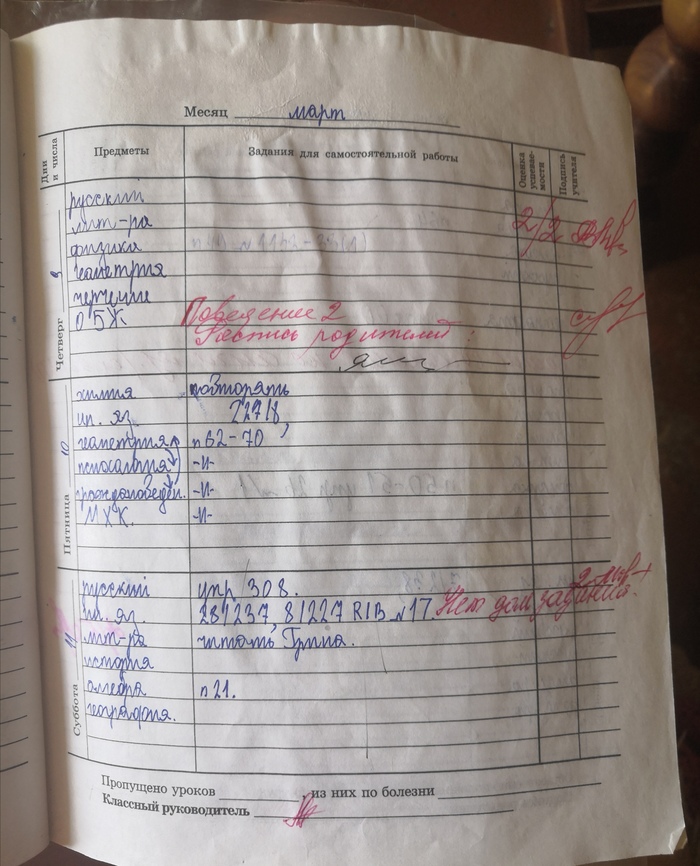 Месяц март
Дни и числа Предметы Задания для самостоятельной работы Оценка успеваемости Подпись учителя
Четверг 9
русский
лит-ра 2/2
физика
геометрия
черчение
ОБЖ Поведение 2
Роспись родителей:
Пятница 10
химия повторять
ин. яз. 227/8,
геометрия п 62-70
психология -и-
граждановеден. -и-
МХК. -и-
Суббота 11
русский упр 308.
ин. яз. 287237, 81227 RIB №17. Нет дом задания.
лит-ра читать Грина.
история
алгебра п 21.
география.
Пропущено уроков , из них по болезни
Классный руководитель